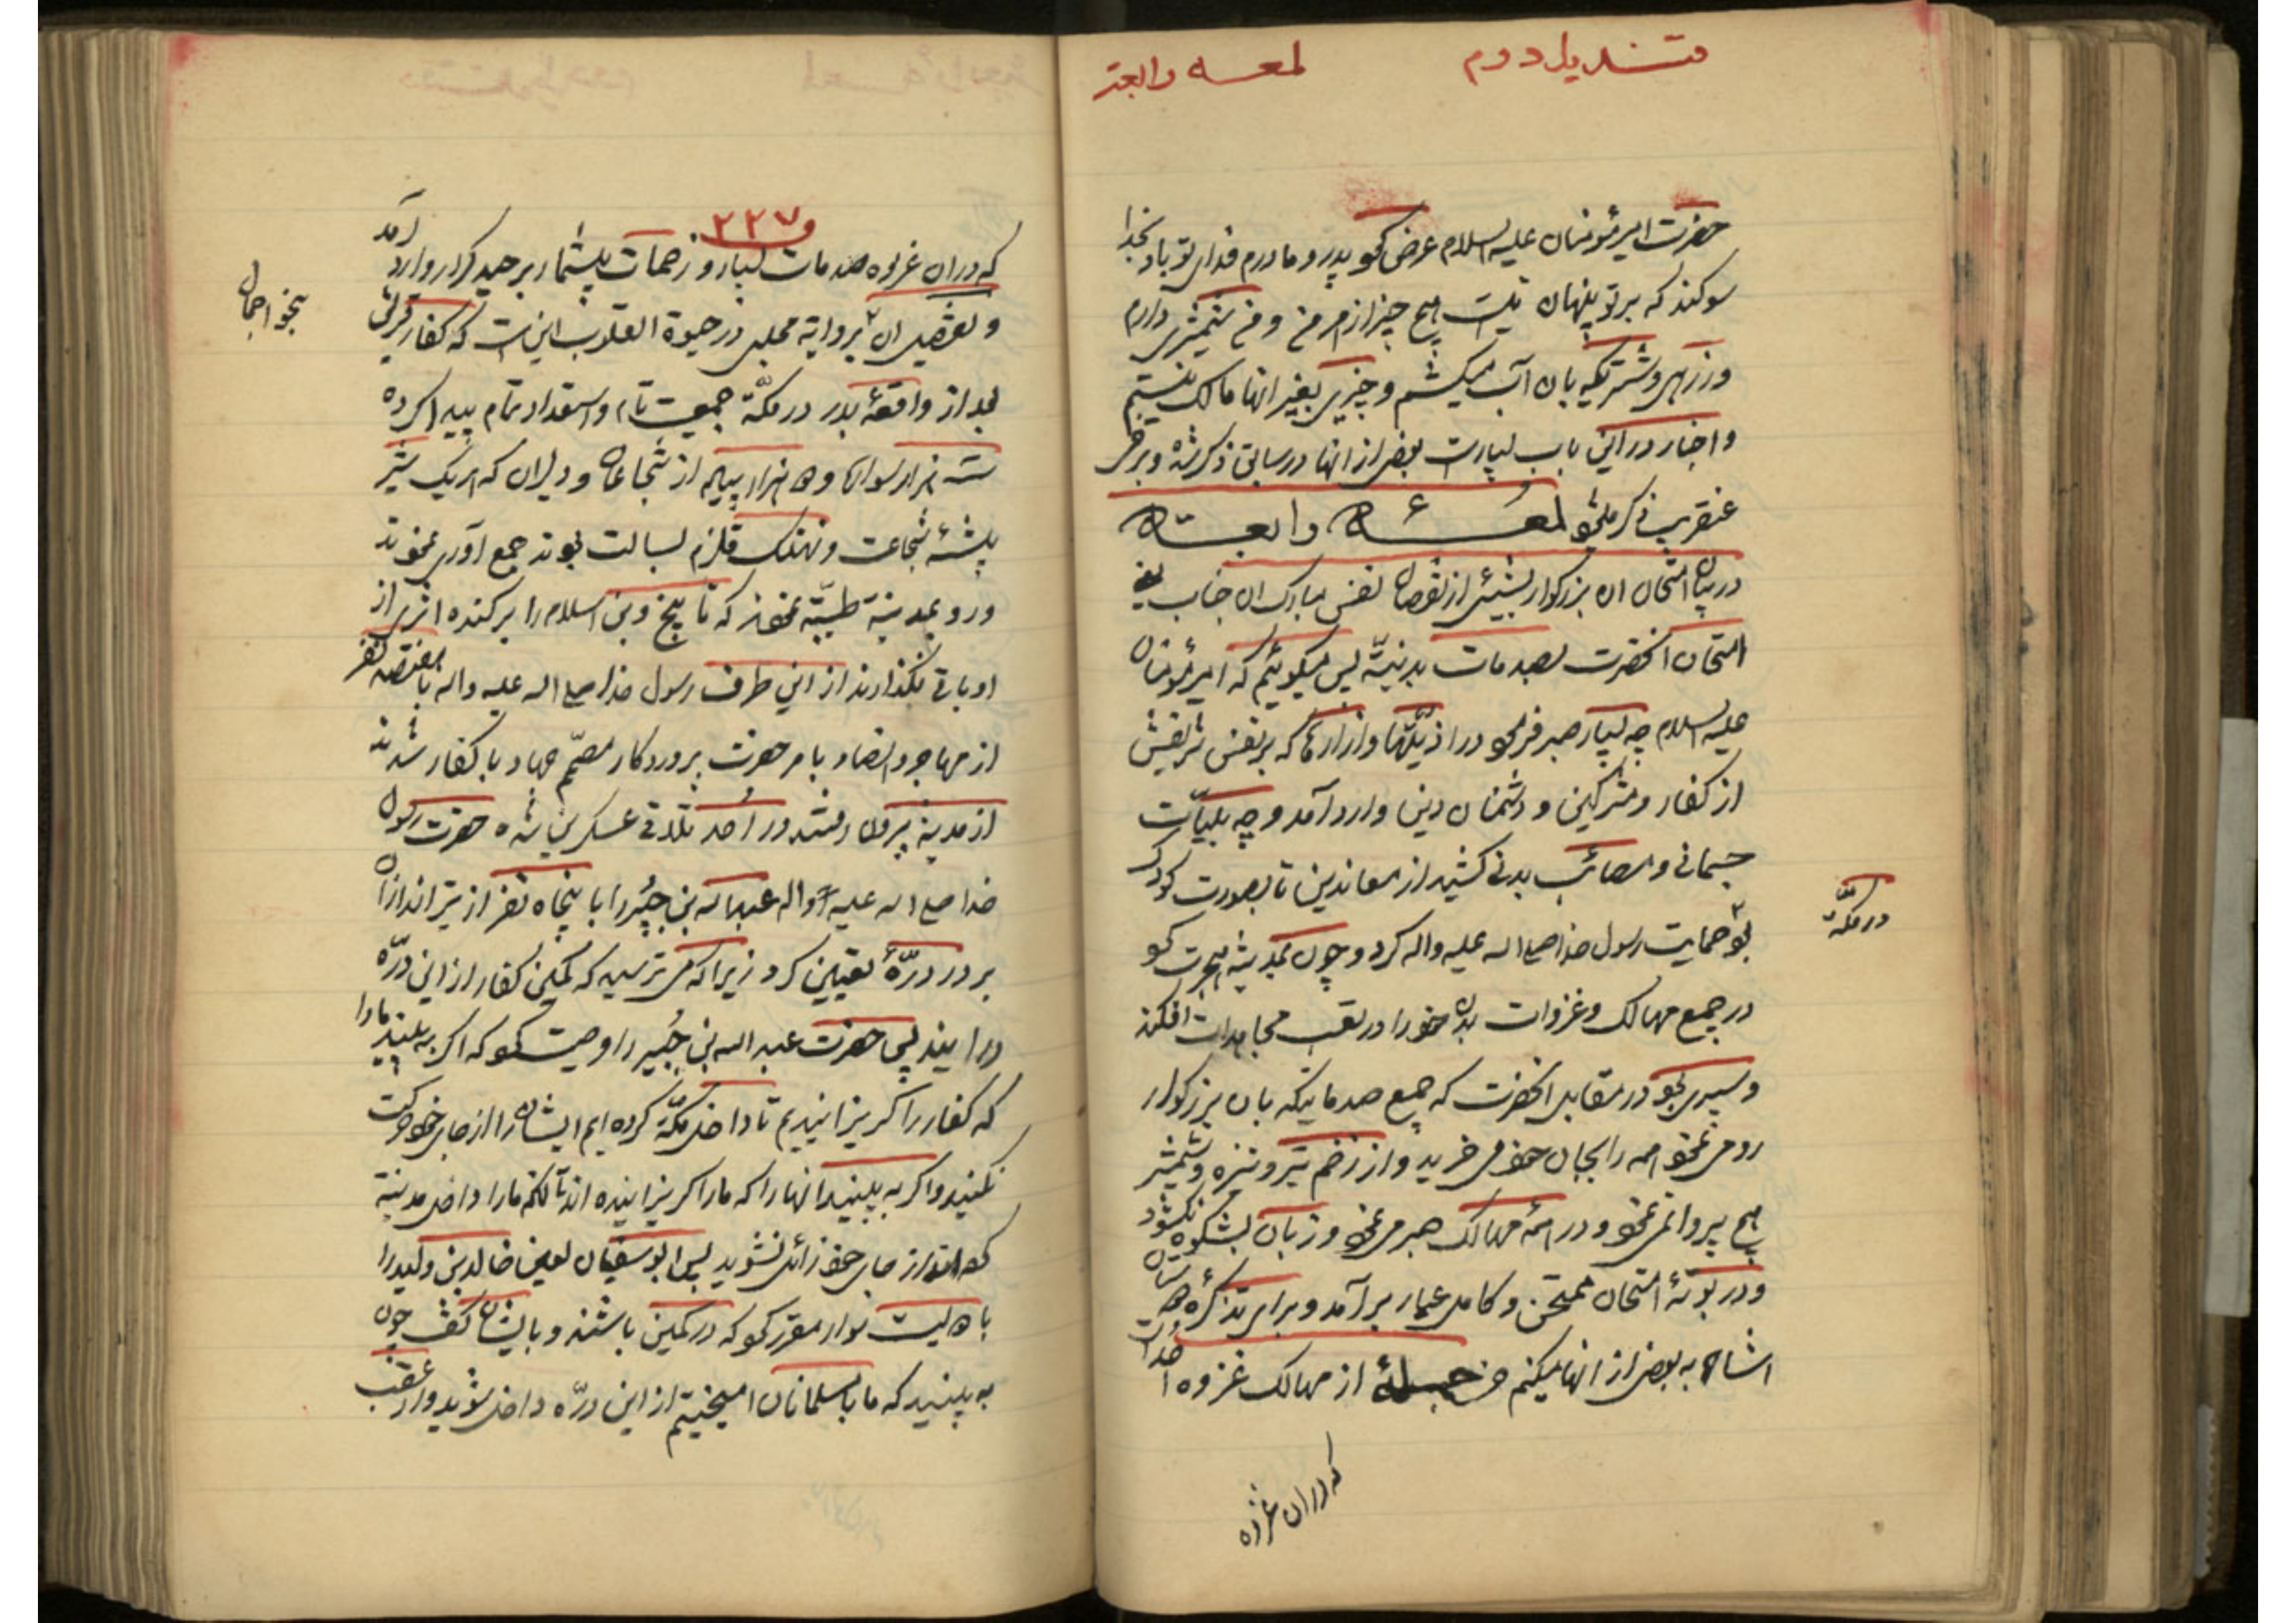 قندیل دوم لمعه رابعة
حضرت امیرمؤمنان علیه السلام عرض کرد پدر و مادرم فدای تو باد بخدا
سوکند که بر تو پنهان نیست هیچ چیز از امر من و من شمشیری دارم
و زرهی و شتریکه بان آب میکشم و چیزی بغیر انها مالک نیستم
و اخبار در این باب بسیارست بعض از انها در سابق ذکر شد و برخی
عنقریب ذکر میشود لمعهٔ رابعه
در بیان امتحان ان بزرکوار بشیئی از نقصان نفس مبارک ان جناب یعنی
امتحان انحضرت بصدمات بدنیّة پس میکوئیم که امیرمؤمنان
علیه السلام چه بسیار صبر فرمود در اذیّتها و ازارها که بر نفس شریفش
از کفار و مشرکین و دشمنان دین وارد آمد و چه بلیّات
جسمانی و مصائب بدنی کشید از معاندین تا بصورت کودک
بود حمایت رسول خدا صلی الله علیه واله کرد و چون بمدینه هجرت نمود
در مکّه
در جمیع مهالک و غزوات بدن خود را در تعب مجاهدات افکند
و سپری بود در مقابل انحضرت که جمیع صدماتیکه بان بزرکوار
رو می نمود همه را بجان خود می خرید و از زخم تیر و نیزه و شمشیر
هیچ پروا نمی نمود و در همهٔ مهالک صبر می نمود و زبان بشکوه نکشود
و در بوتهٔ امتحان ممتحن و کامل عیار برآمد و برای تذکره
اشاره به بعض از انها میکنم من جملهٔ از مهالک غزوه احد است
که در ان غزوه
و ۲۲۷
که در ان غزوه صدمات بسیار و زحمات بیشمار بر حیدر کرار وارد آمد
و تفصیل ان بروایة مجلسی در حیوة القلوب اینست که کفار قریش
بنحو اجمال
بعد از واقعهٔ بدر در مکّة جمعیت تام و استعداد تمام پیدا کرده
سه هزار سواره و دو هزار پیاده از شجاعان و دلیران که هر یک شیر
بیشهٔ شجاعت و نهنک قلزم بسالت بودند جمع آوری نمودند
و رو بمدینة طیبّة نمودند که تا بیخ دین اسلام را برکنده اثری از
او باقی نکذارند از این طرف رسول خدا صلی الله علیه واله با هفتصد نفر
از مهاجر و انصار بامر حضرت پروردکار مصمّم جهاد با کفار شدند
از مدینة بیرون رفتند در اُحد تلاقی عسکرین شد حضرت رسول
خدا صلی الله علیه واله عبدالله بن جُبیر را با پنجاه نفر از تیر اندازان
بر در درّهٔ تعیین کرد زیرا که می ترسید که کمین کفار از این درّه
درایند پس حضرت عبدالله بن جُبیر را وصیت نمود که اکر به بینید مارا
که کفار را کریزانیدیم تا داخل مکّة کرده ایم ایشان را از جای خود حرکت
نکنید و اکر به بینید انها را که ما را کریزانیده اند تا انکه ما را داخل مدینة
کرده اند از جای خود زائل نشوید پس ابوسفیان لعین خالد بن ولید را
با دویست سوار مقرر نمود که در کمین باشند و بایشان کفت چون
به بینید که ما با مسلمانان امیختیم از این درّه داخل شوید و از عقب